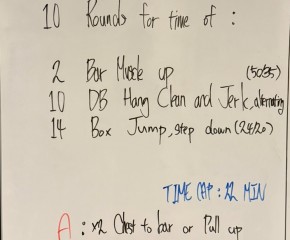 10 Rounds for time of :
2 Bar Muscle up
(50/35)
10 DB Hang Clean and Jerk, alternating
14 Box Jump, step down (24/20)
TIME CAP : 22 MIN
A : x2 Chest to bar or Pull up